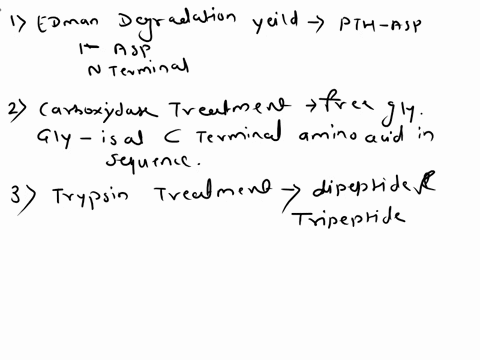 1) EDman Degradation yeild → PTH-ASP
1- ASP
N Terminal
2) Carboxydase Treatment → free gly.
Gly - is at C Terminal amino acid in
sequence.
3) Trypsin Treatment → dipeptide &
Tripeptide